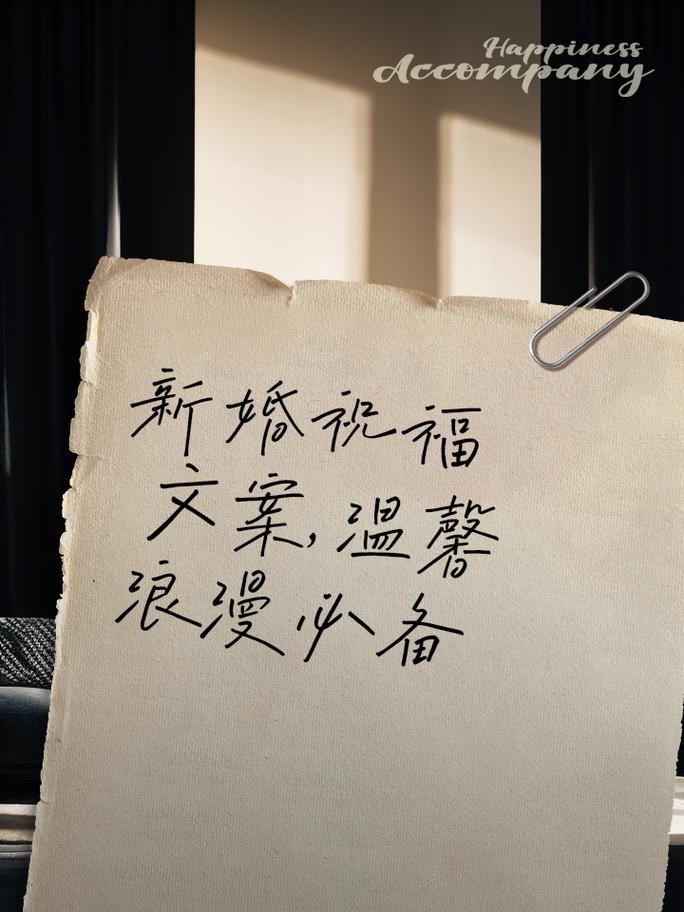 Happiness
Accompany
新婚祝福
文案,温馨
浪漫必备